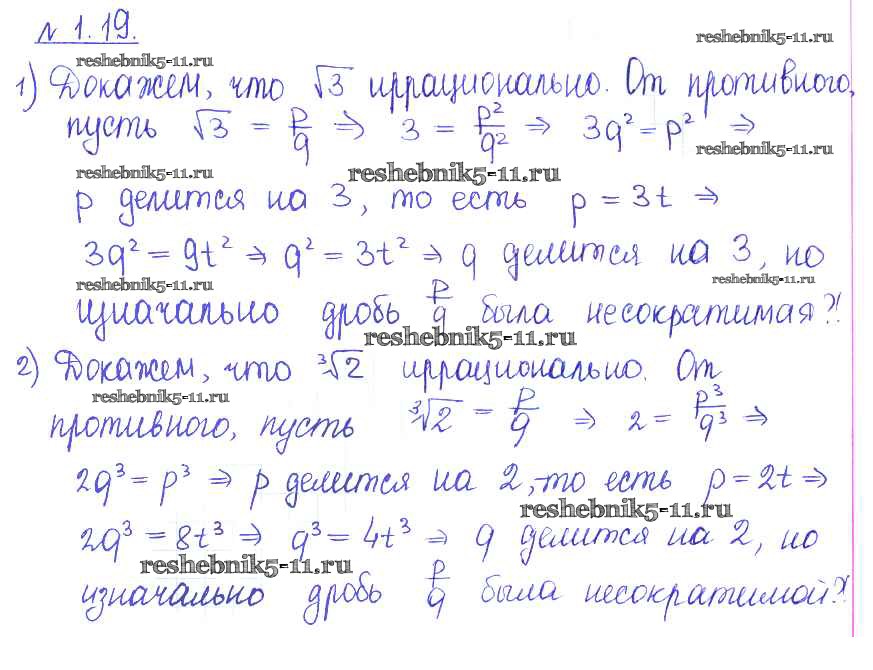 № 1.19.
reshebnik5-11.ru reshebnik5-11.ru
1) Докажем, что √3 иррационально. От противного,
пусть √3 = p/q ⇒ 3 = p²/q² ⇒ 3q² = p² ⇒
reshebnik5-11.ru
reshebnik5-11.ru reshebnik5-11.ru
p делится на 3, то есть p = 3t ⇒
3q² = 9t² ⇒ q² = 3t² ⇒ q делится на 3, но
reshebnik5-11.ru reshebnik5-11.ru
изначально дробь p/q была несократимая?!
reshebnik5-11.ru
2) Докажем, что ∛2 иррационально. От
reshebnik5-11.ru
противного, пусть ∛2 = p/q ⇒ 2 = p³/q³ ⇒
2q³ = p³ ⇒ p делится на 2, то есть p = 2t ⇒
reshebnik5-11.ru
2q³ = 8t³ ⇒ q³ = 4t³ ⇒ q делится на 2, но
reshebnik5-11.ru
изначально дробь p/q была несократимой?!